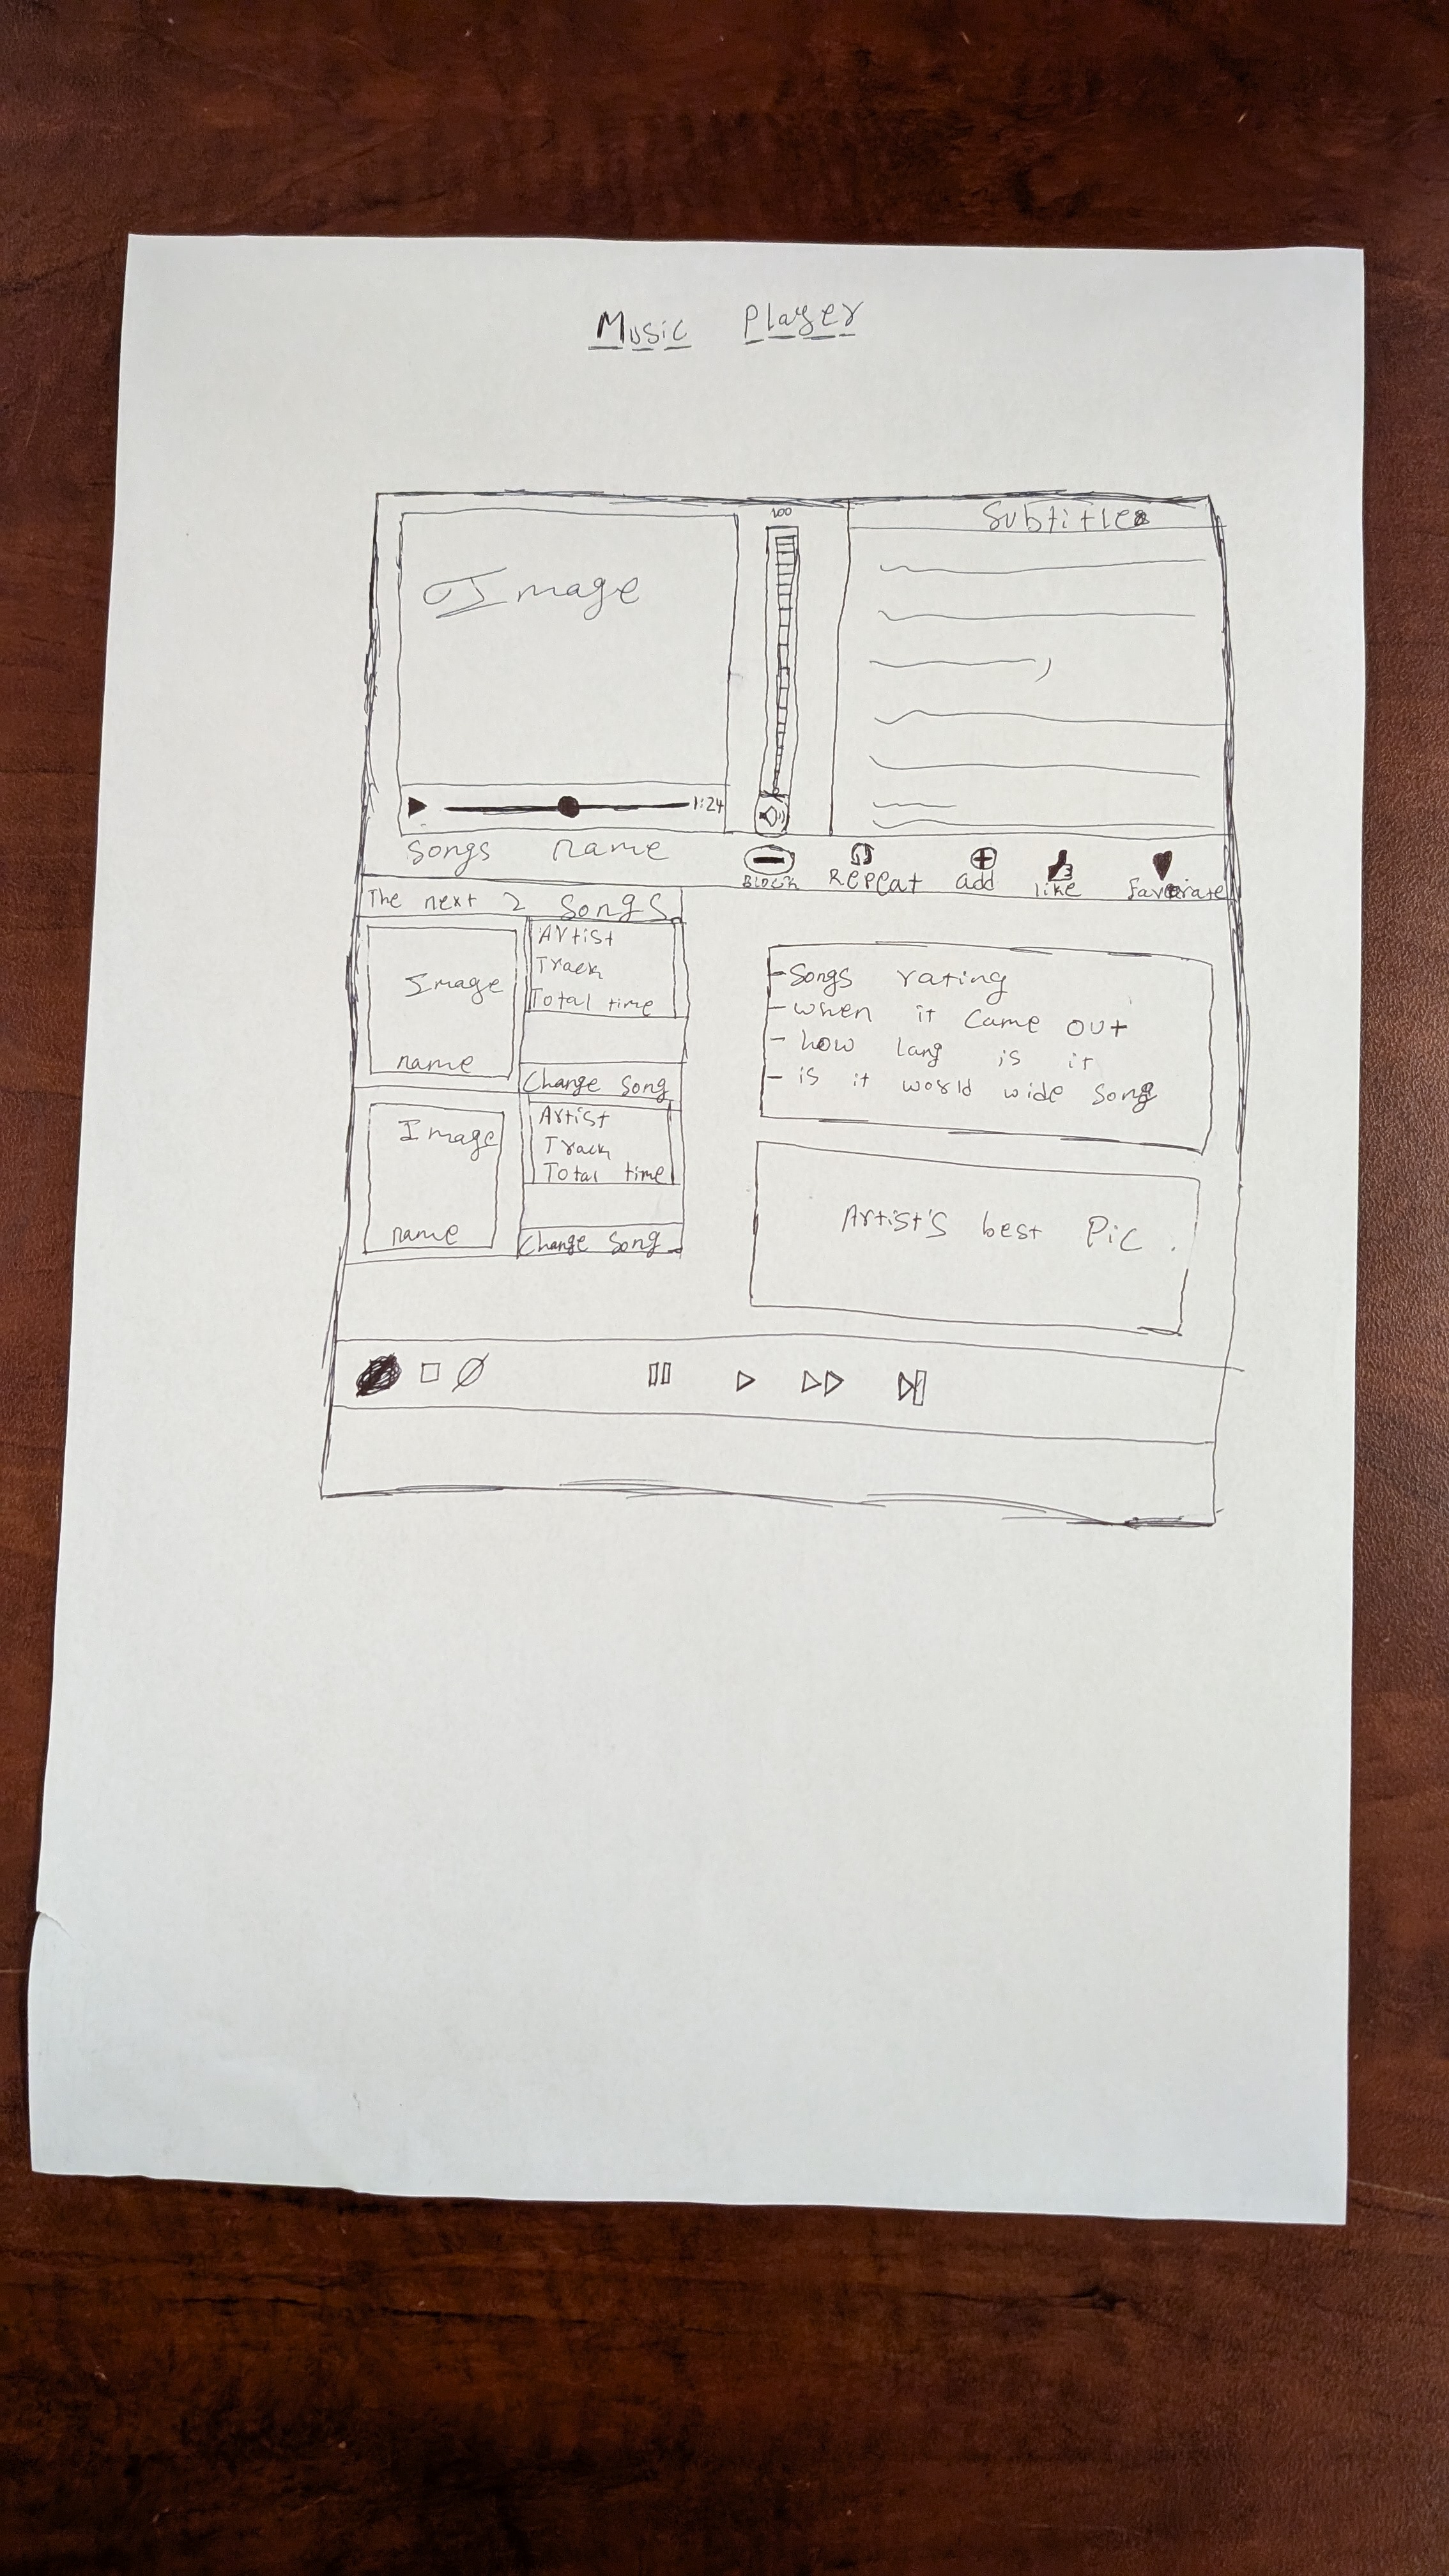 Music Player
100
Subtitles
Image
1:24
Songs name
Block
Repeat
add
like
The next 2 Songs
Image
name
Artist
Track
Total time
Change Song
Image
name
Artist
Track
Total time
Change Song
- Songs rating
- when it Came out
- how lang is it
- is it world wide song
Artist's best Pic.